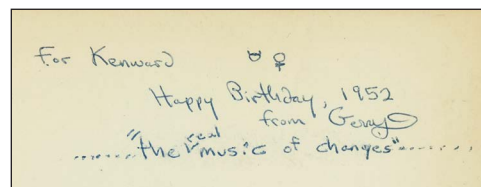 For Kenward ♉ ♀
Happy Birthday, 1952
from Gerry
real
........"the music of changes"........